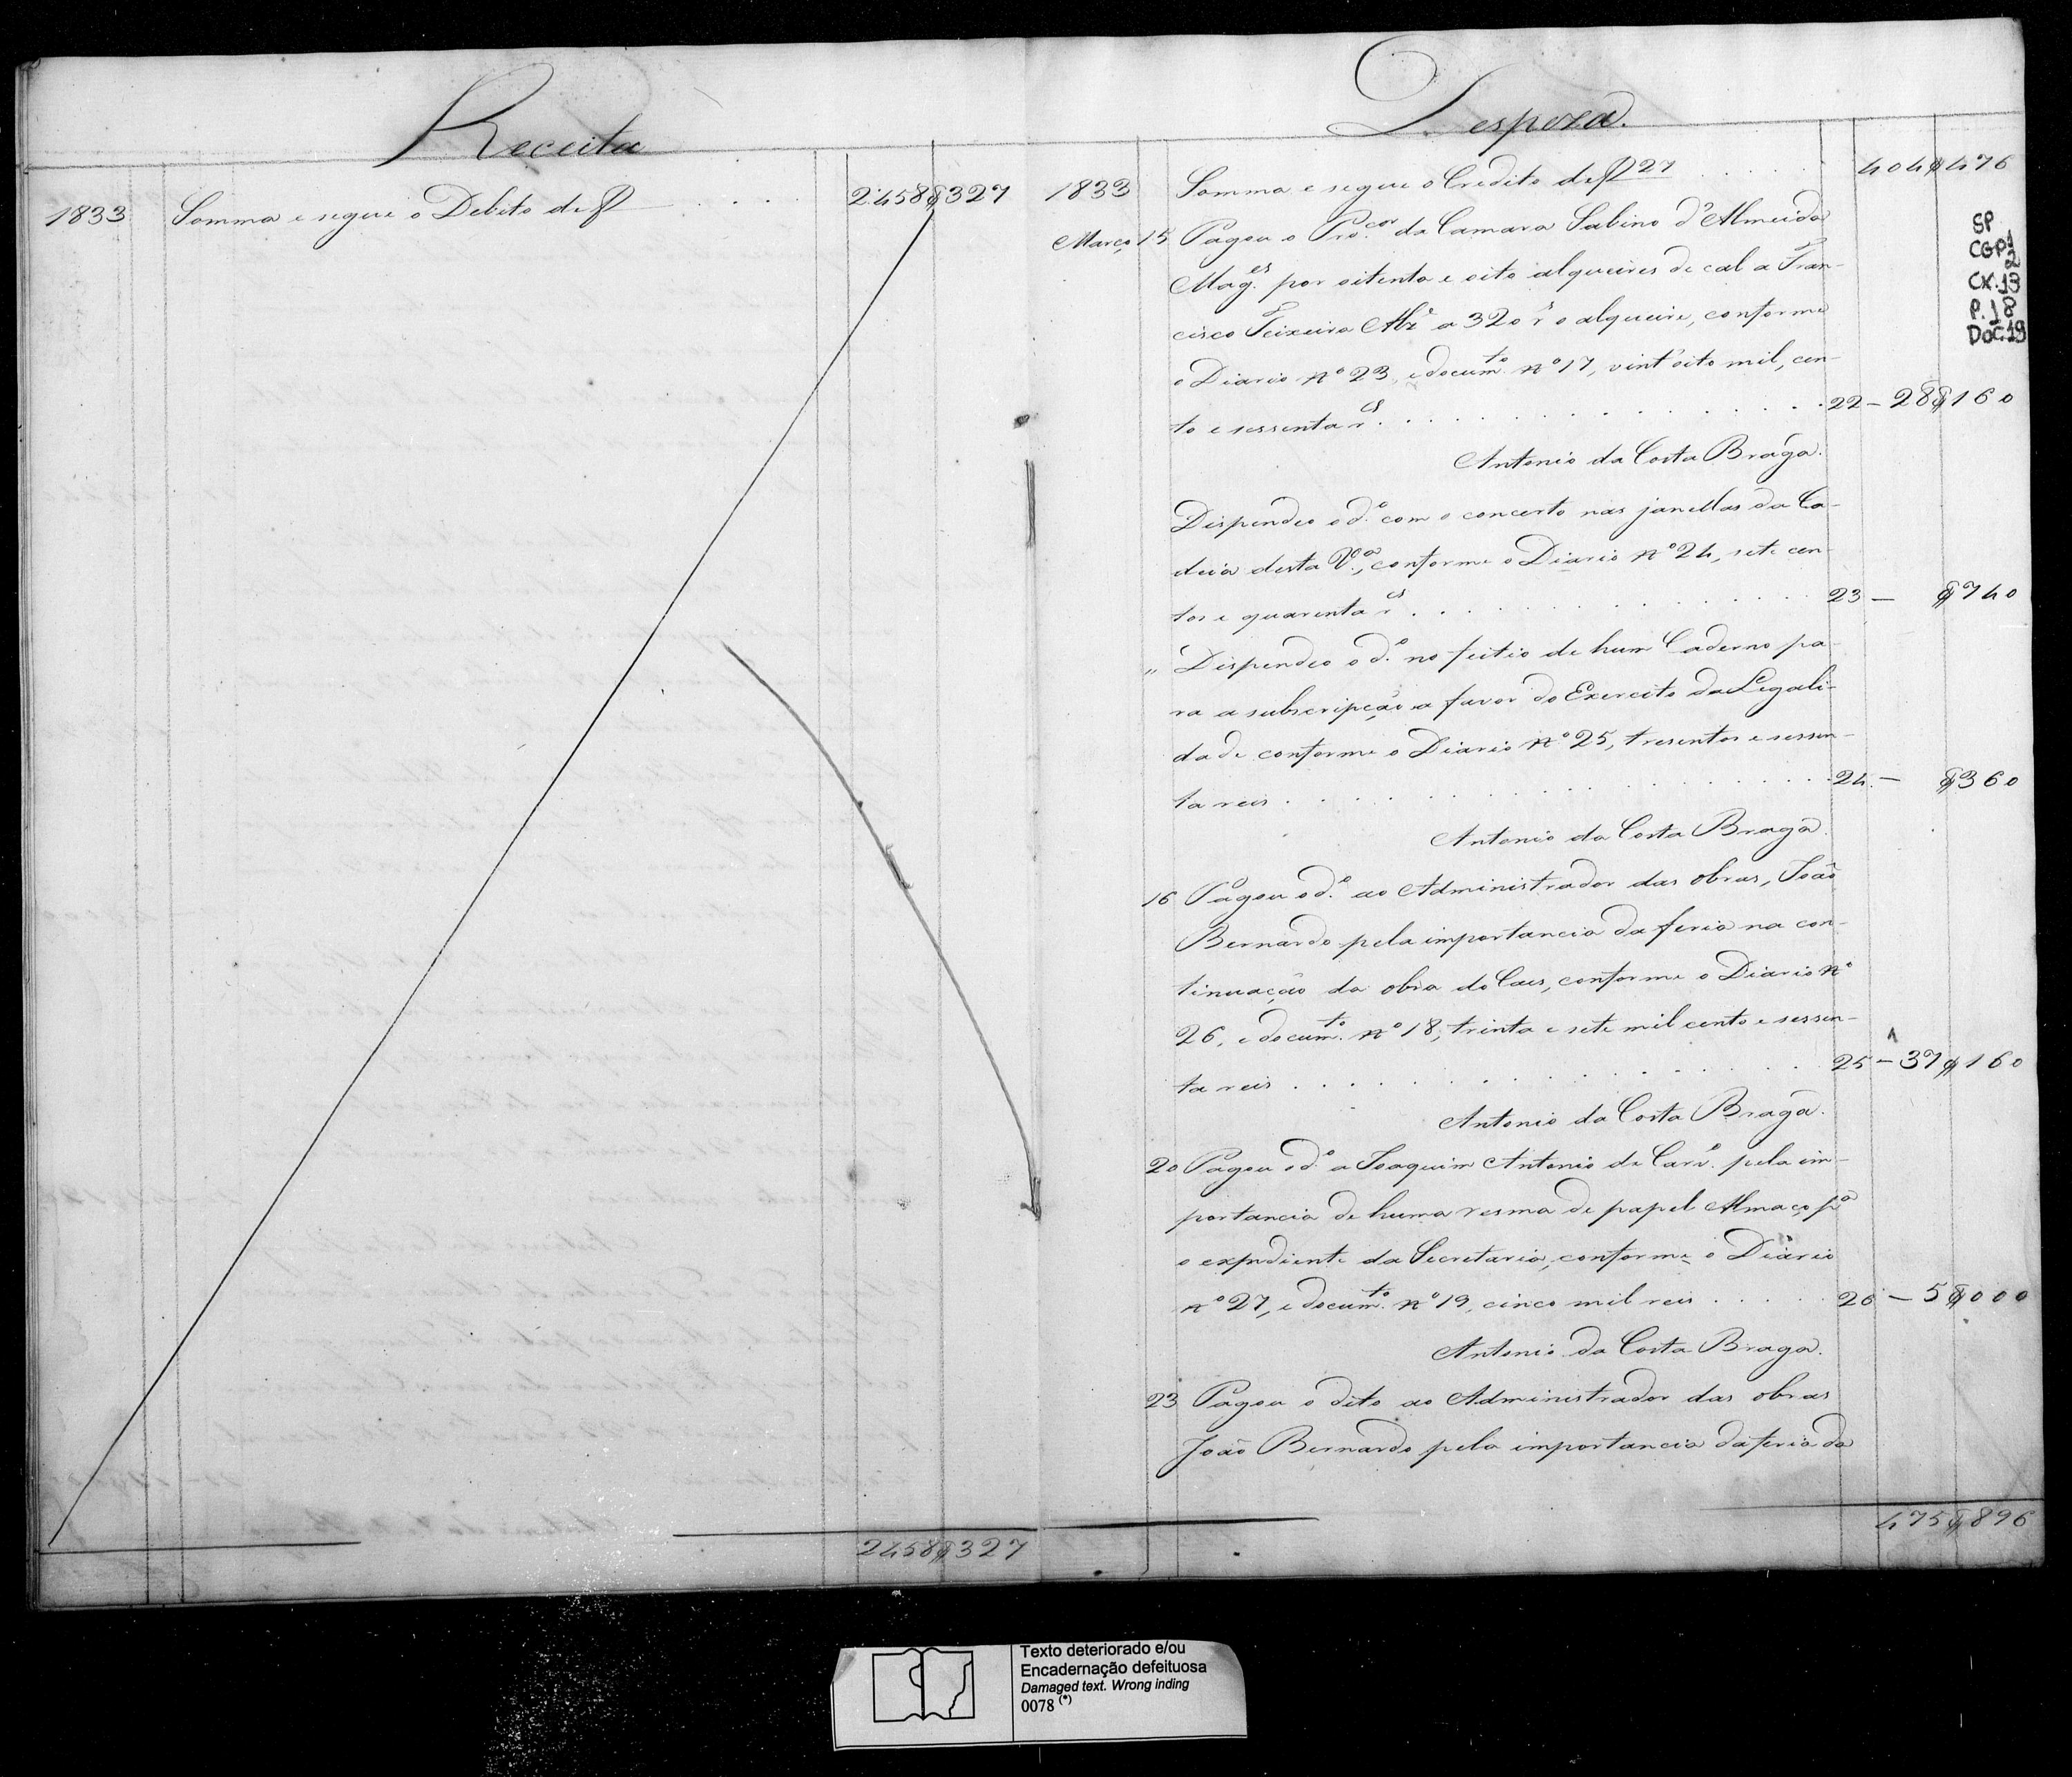 Receita
1833 Somma e segue o Debito de f 2:458$327
2458$327
Despeza.
1833 Somma e segue o Credito de f 27 404$476
Março 15 Pagou o Pro.cor da Camara Sabino d'Almeida
Mag.es por oitenta e oito alqueires de cal a Fran-
cisco Teixeira a 320 rs o alqueire, conforme
o Diario nº 23, e docum.to nº 17, vint'oito mil, cen-
to e sessenta r.es 22 - 28$160
Antonio da Costa Braga.
Dispendeo o d.o com o concerto nas janellas da Ca-
deia desta V.a, conforme o Diario nº 24, sete cen-
tos e quarenta r.es 23 - $740
" Dispendeo o d.o no feitio de hum Caderno pa-
ra a subscripção a favor do Exercito da Legali-
dade conforme o Diario nº 25, tresentos e sessen-
ta reis 24 - $360
Antonio da Costa Braga.
16 Pagou o d.o ao Administrador das obras, João
Bernardo pela importancia da feria na con-
tinuação da obra do Caes, conforme o Diario nº
26, e docum.to nº 18, trinta e sete mil cento e sessen-
ta reis 25 - 37$160
Antonio da Costa Braga.
20 Pagou o d.o a Joaquim Antonio de Carv.o pela im-
portancia de huma resma de papel Almaço p.a
o expediente da Secretaria, conforme o Diario
nº 27, e docum.to nº 19, cinco mil reis 26 - 5$000
Antonio da Costa Braga.
23 Pagou o dito ao Administrador das obras
João Bernardo pela importancia da feria da
475$896
SP
CGP1
2
CX.13
P.18
DOC.19
Texto deteriorado e/ou
Encadernação defeituosa
Damaged text. Wrong inding
0078 (*)